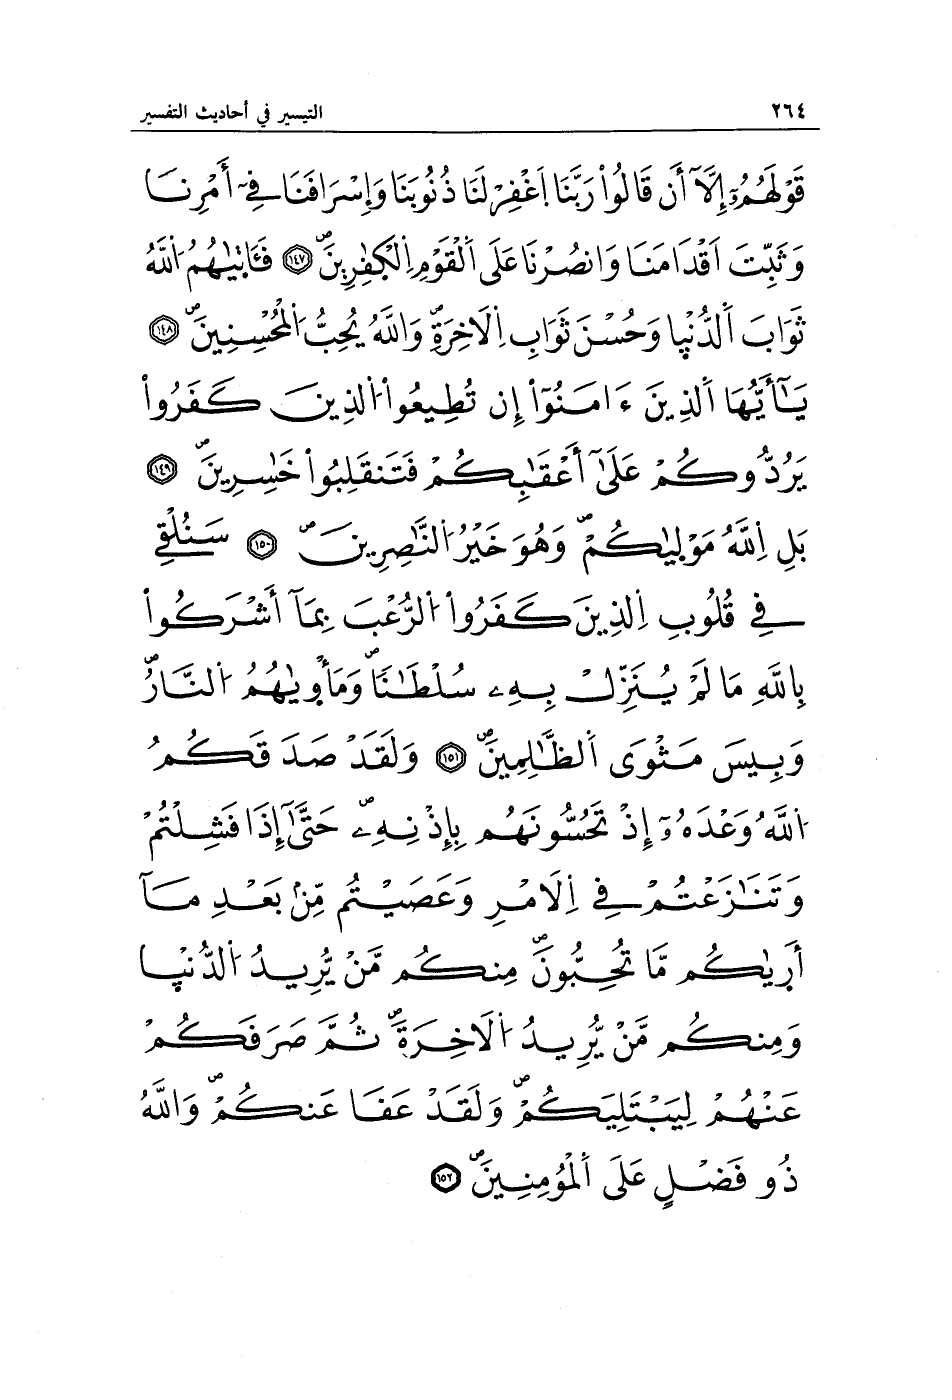 ٢٦٤ التيسير في أحاديث التفسير
قَوْلَهُمُۥٓ إِلَّآ أَن قَالُواْ رَبَّنَا اَغْفِرْ لَنَا ذُنُوبَنَا وَإِسْرَافَنَا فِےٓ أَمْرِنَا
وَثَبِّتَ اَقْدَامَنَا وَانصُرْنَا عَلَى اَلْقَوْمِ اِلْكٰفِرِينَۖ ١٤٧ فَـَٔاتٰىٰهُمُ اَللَّهُ
ثَوَابَ اَلدُّنْيٰا وَحُسْنَ ثَوَابِ اِلَاخِرَةِۖ وَاللَّهُ يُحِبُّ اَلْمُحْسِنِينَۖ ١٤٨
يَٰٓأَيُّهَا اَلذِينَ ءَامَنُوٓاْ إِن تُطِيعُواْ اَلذِينَ كَفَرُواْ
يَرُدُّوكُمْ عَلَىٰٓ أَعْقَٰبِكُمْ فَتَنقَلِبُواْ خَٰسِرِينَۖ ١٤٩
بَلِ اِللَّهُ مَوْلىٰكُمْۖ وَهُوَ خَيْرُ اَلنَّٰصِرِينَۖ ١٥٠ سَنُلْقِے
فِے قُلُوبِ اِلذِينَ كَفَرُواْ اَلرُّعْبَ بِمَآ أَشْرَكُواْ
بِاللَّهِ مَا لَمْ يُنَزِّلْ بِهِۦ سُلْطَٰنٗاۖ وَمَأْوىٰهُمُ اَلنَّارُۖ
وَبِيسَ مَثْوَى اَلظَّٰلِمِينَۖ ١٥١ وَلَقَدْ صَدَقَكُمُ
اَللَّهُ وَعْدَهُۥٓ إِذْ تَحُسُّونَهُم بِإِذْنِهِۦۖ حَتَّىٰٓ إِذَا فَشِلْتُمْ
وَتَنَٰزَعْتُمْ فِے اِلَامْرِ وَعَصَيْتُم مِّنۢ بَعْدِ مَآ
أَرىٰكُم مَّا تُحِبُّونَۖ مِنكُم مَّنْ يُّرِيدُ اَلدُّنْيٰا
وَمِنكُم مَّنْ يُّرِيدُ اَلَاخِرَةَۖ ثُمَّ صَرَفَكُمْ
عَنْهُمْ لِيَبْتَلِيَكُمْۖ وَلَقَدْ عَفَا عَنكُمْۖ وَاللَّهُ
ذُو فَضْلٍ عَلَى اَلْمُؤْمِنِينَۖ ١٥٢